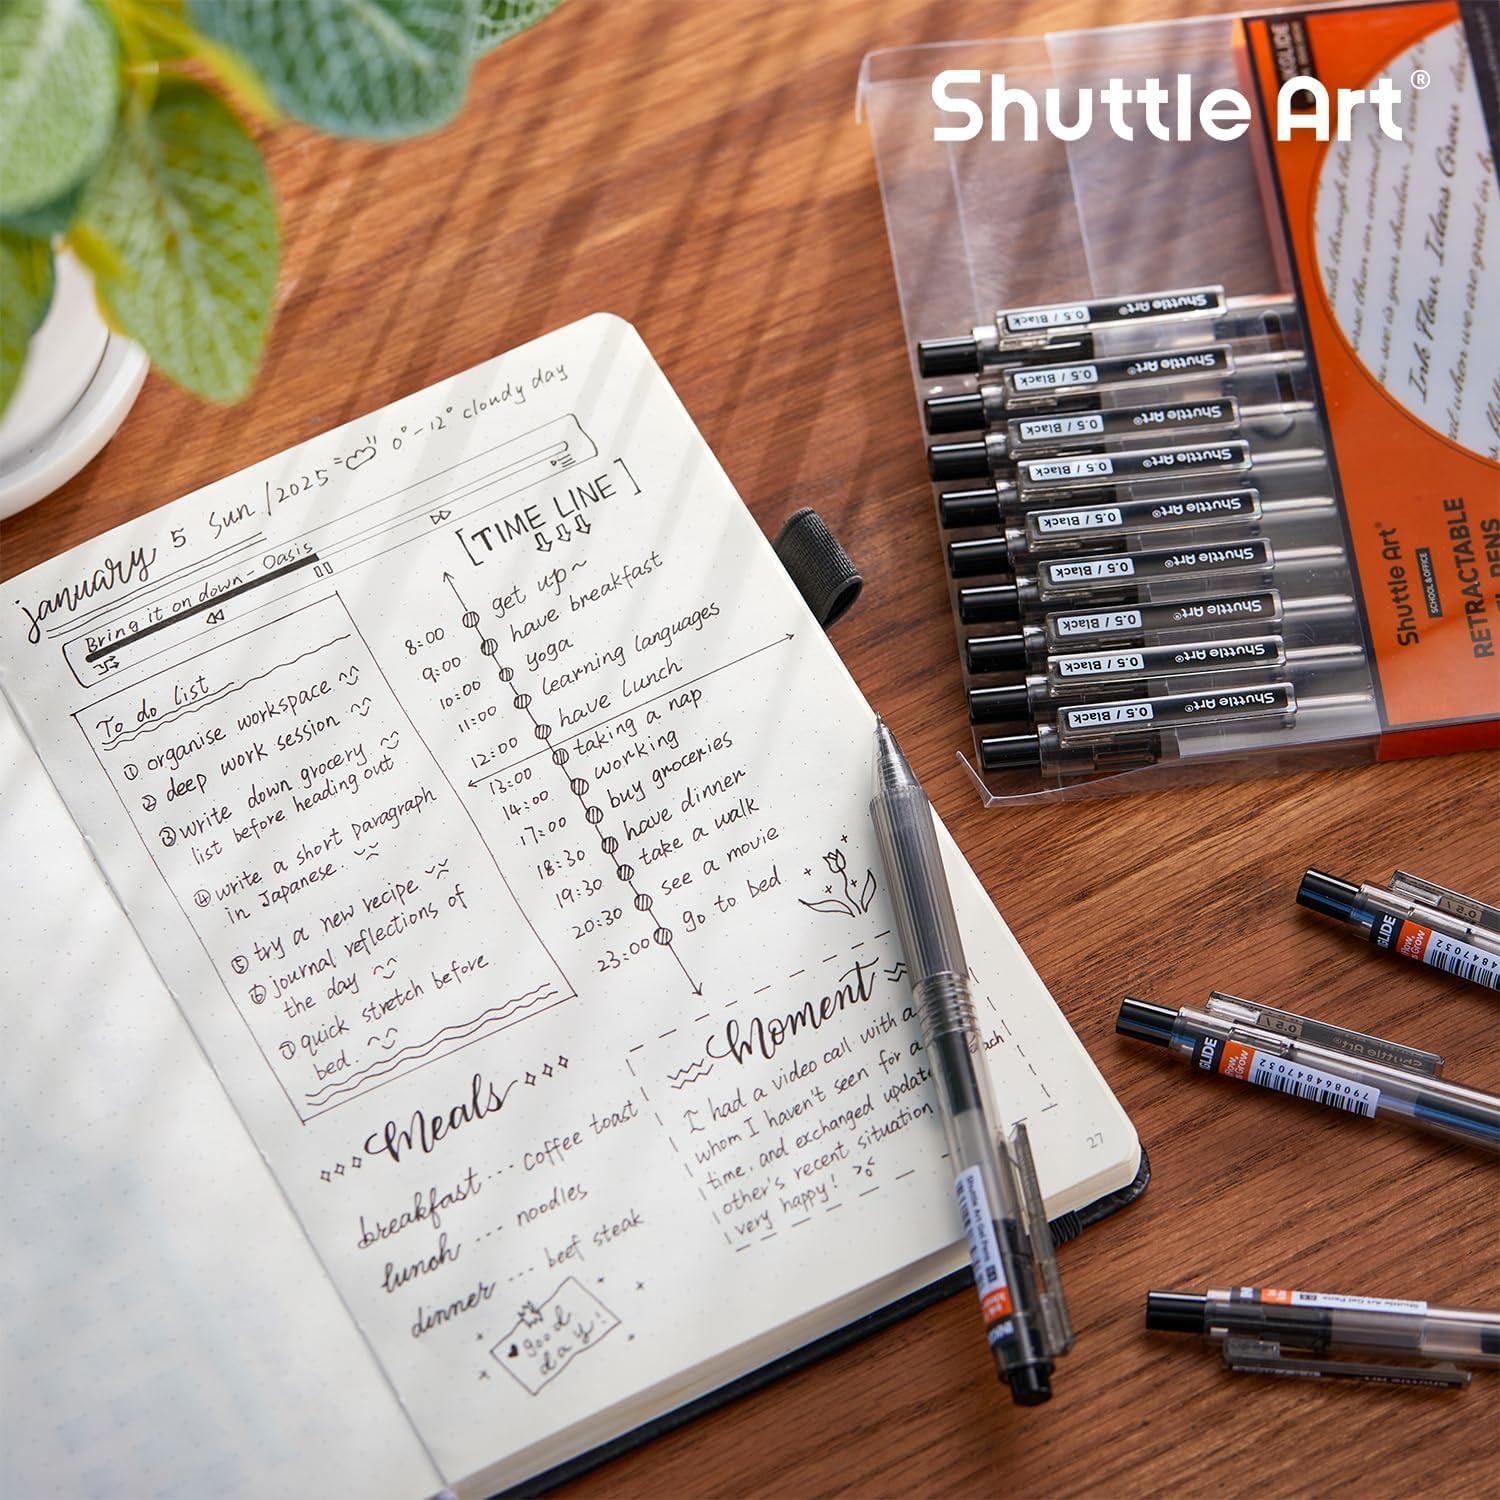 Shuttle Art®
january 5. Sun /2025 0°-12° cloudy day
Bring it on down - Oasis
To do list
① organise workspace ^^
② deep work session ^^
③ write down grocery
list before heading out
④ write a short paragraph
in Japanese.
⑤ try a new recipe
⑥ journal reflections of
the day
⑦ quick stretch before
bed.
[TIME LINE]
8:00 get up~
9:00 have breakfast
10:00 yoga
11:00 learning languages
12:00 have lunch
13:00 taking a nap
14:00 working
17:00 buy groceries
18:30 have dinner
19:30 take a walk
20:30 see a movie
23:00 go to bed
Meals
breakfast --- coffee toast
lunch --- noodles
dinner --- beef steak
good
day!
Moment
I had a video call with a
whom I haven't seen for a
time, and exchanged update
each
other's recent situation
very happy!
27
0.5 / Black Shuttle Art®
0.5 / Black Shuttle Art®
0.5 / Black Shuttle Art®
0.5 / Black Shuttle Art®
0.5 / Black Shuttle Art®
0.5 / Black Shuttle Art®
0.5 / Black Shuttle Art®
0.5 / Black Shuttle Art®
0.5 / Black Shuttle Art®
Ink Flow Ideas Grow
Shuttle Art®
SCHOOL & OFFICE
RETRACTABLE
PENS
Shuttle Art Gel Pens
GLIDE
Flow,
Grow
4847032
GLIDE
Flow,
s Grow
790864847032
Shuttle Art®
Shuttle Art Gel Pens
Shuttle Art